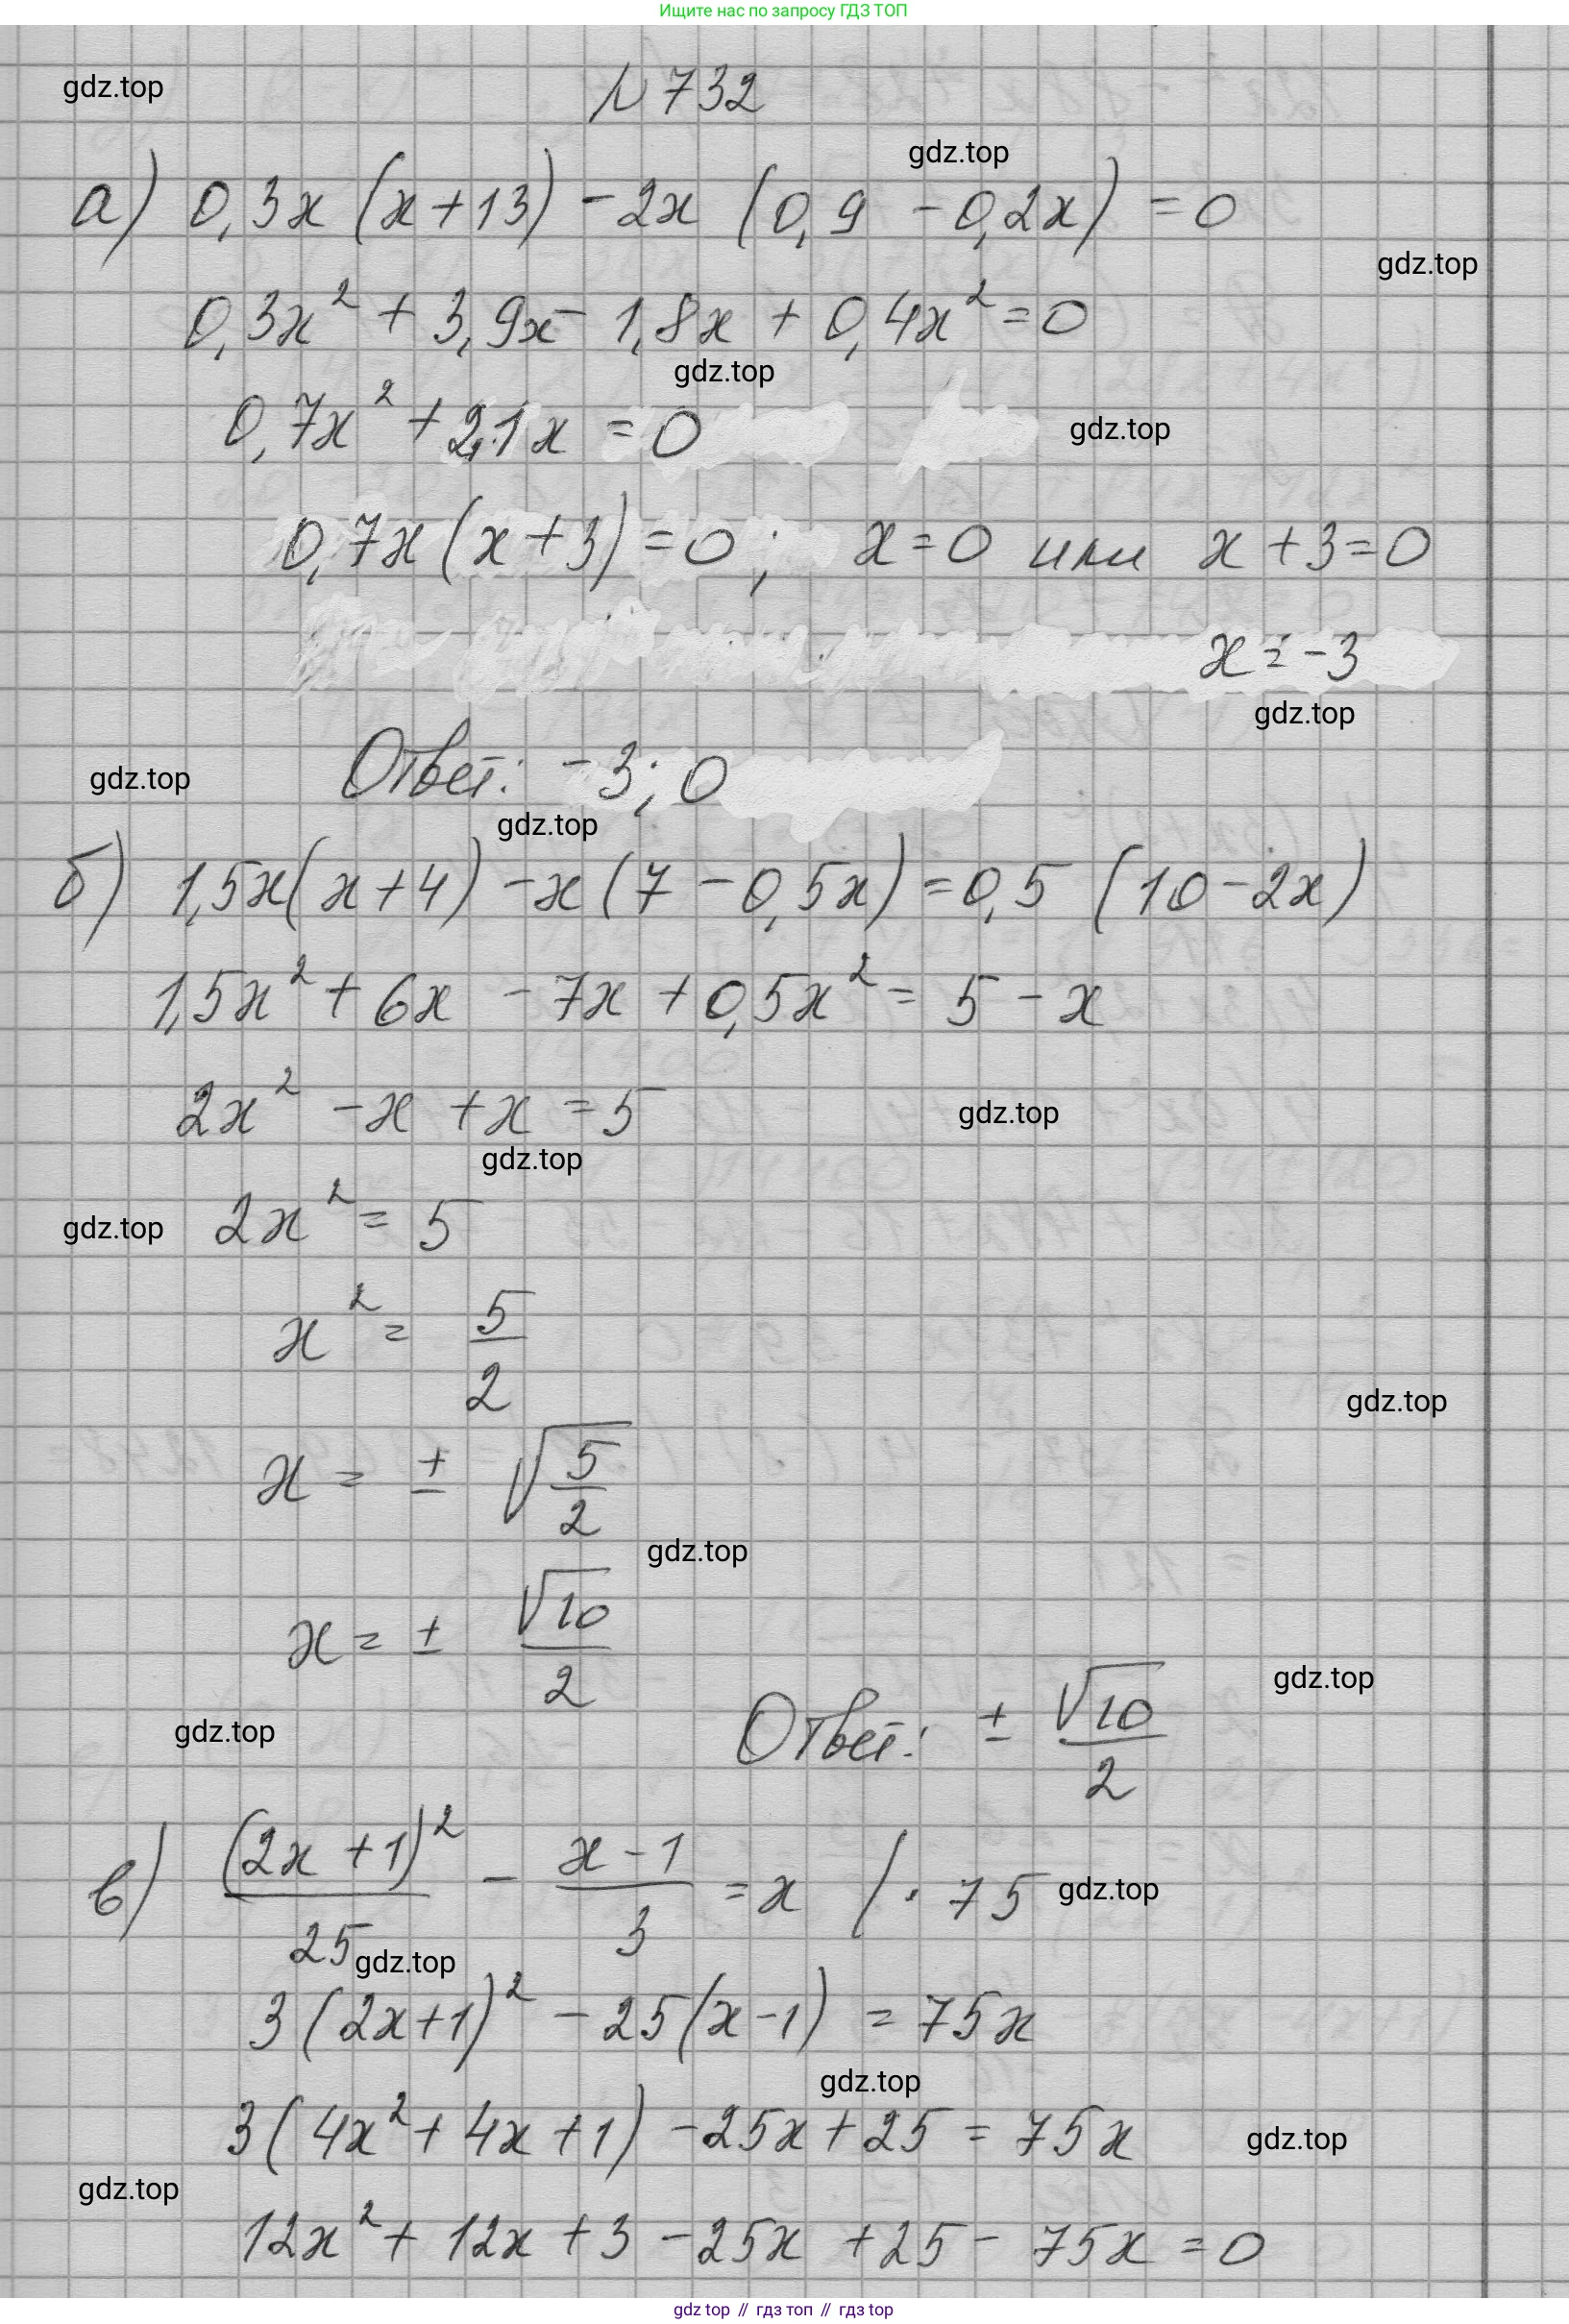 Ищите нас по запросу ГДЗ ТОП
gdz.top
№ 732
gdz.top
а) 0,3x (x+13) - 2x (0,9 - 0,2x) = 0
gdz.top
0,3x² + 3,9x - 1,8x + 0,4x² = 0
gdz.top
0,7x² + 2,1x = 0
gdz.top
0,7x (x+3) = 0; x = 0 или x + 3 = 0
x = -3
gdz.top
Ответ: -3; 0
gdz.top
gdz.top
б) 1,5x(x+4) - x(7 - 0,5x) = 0,5 (10 - 2x)
1,5x² + 6x - 7x + 0,5x² = 5 - x
2x² - x + x = 5
gdz.top
gdz.top
2x² = 5
gdz.top
x² = 5/2
gdz.top
x = ± √(5/2)
gdz.top
x = ± √10/2
gdz.top
Ответ: ± √10/2
gdz.top
в) (2x+1)²/25 - (x-1)/3 = x / · 75
gdz.top
gdz.top
3(2x+1)² - 25(x-1) = 75x
gdz.top
3(4x² + 4x + 1) - 25x + 25 = 75x
gdz.top
gdz.top
12x² + 12x + 3 - 25x + 25 - 75x = 0
gdz top // гдз топ // гдз top